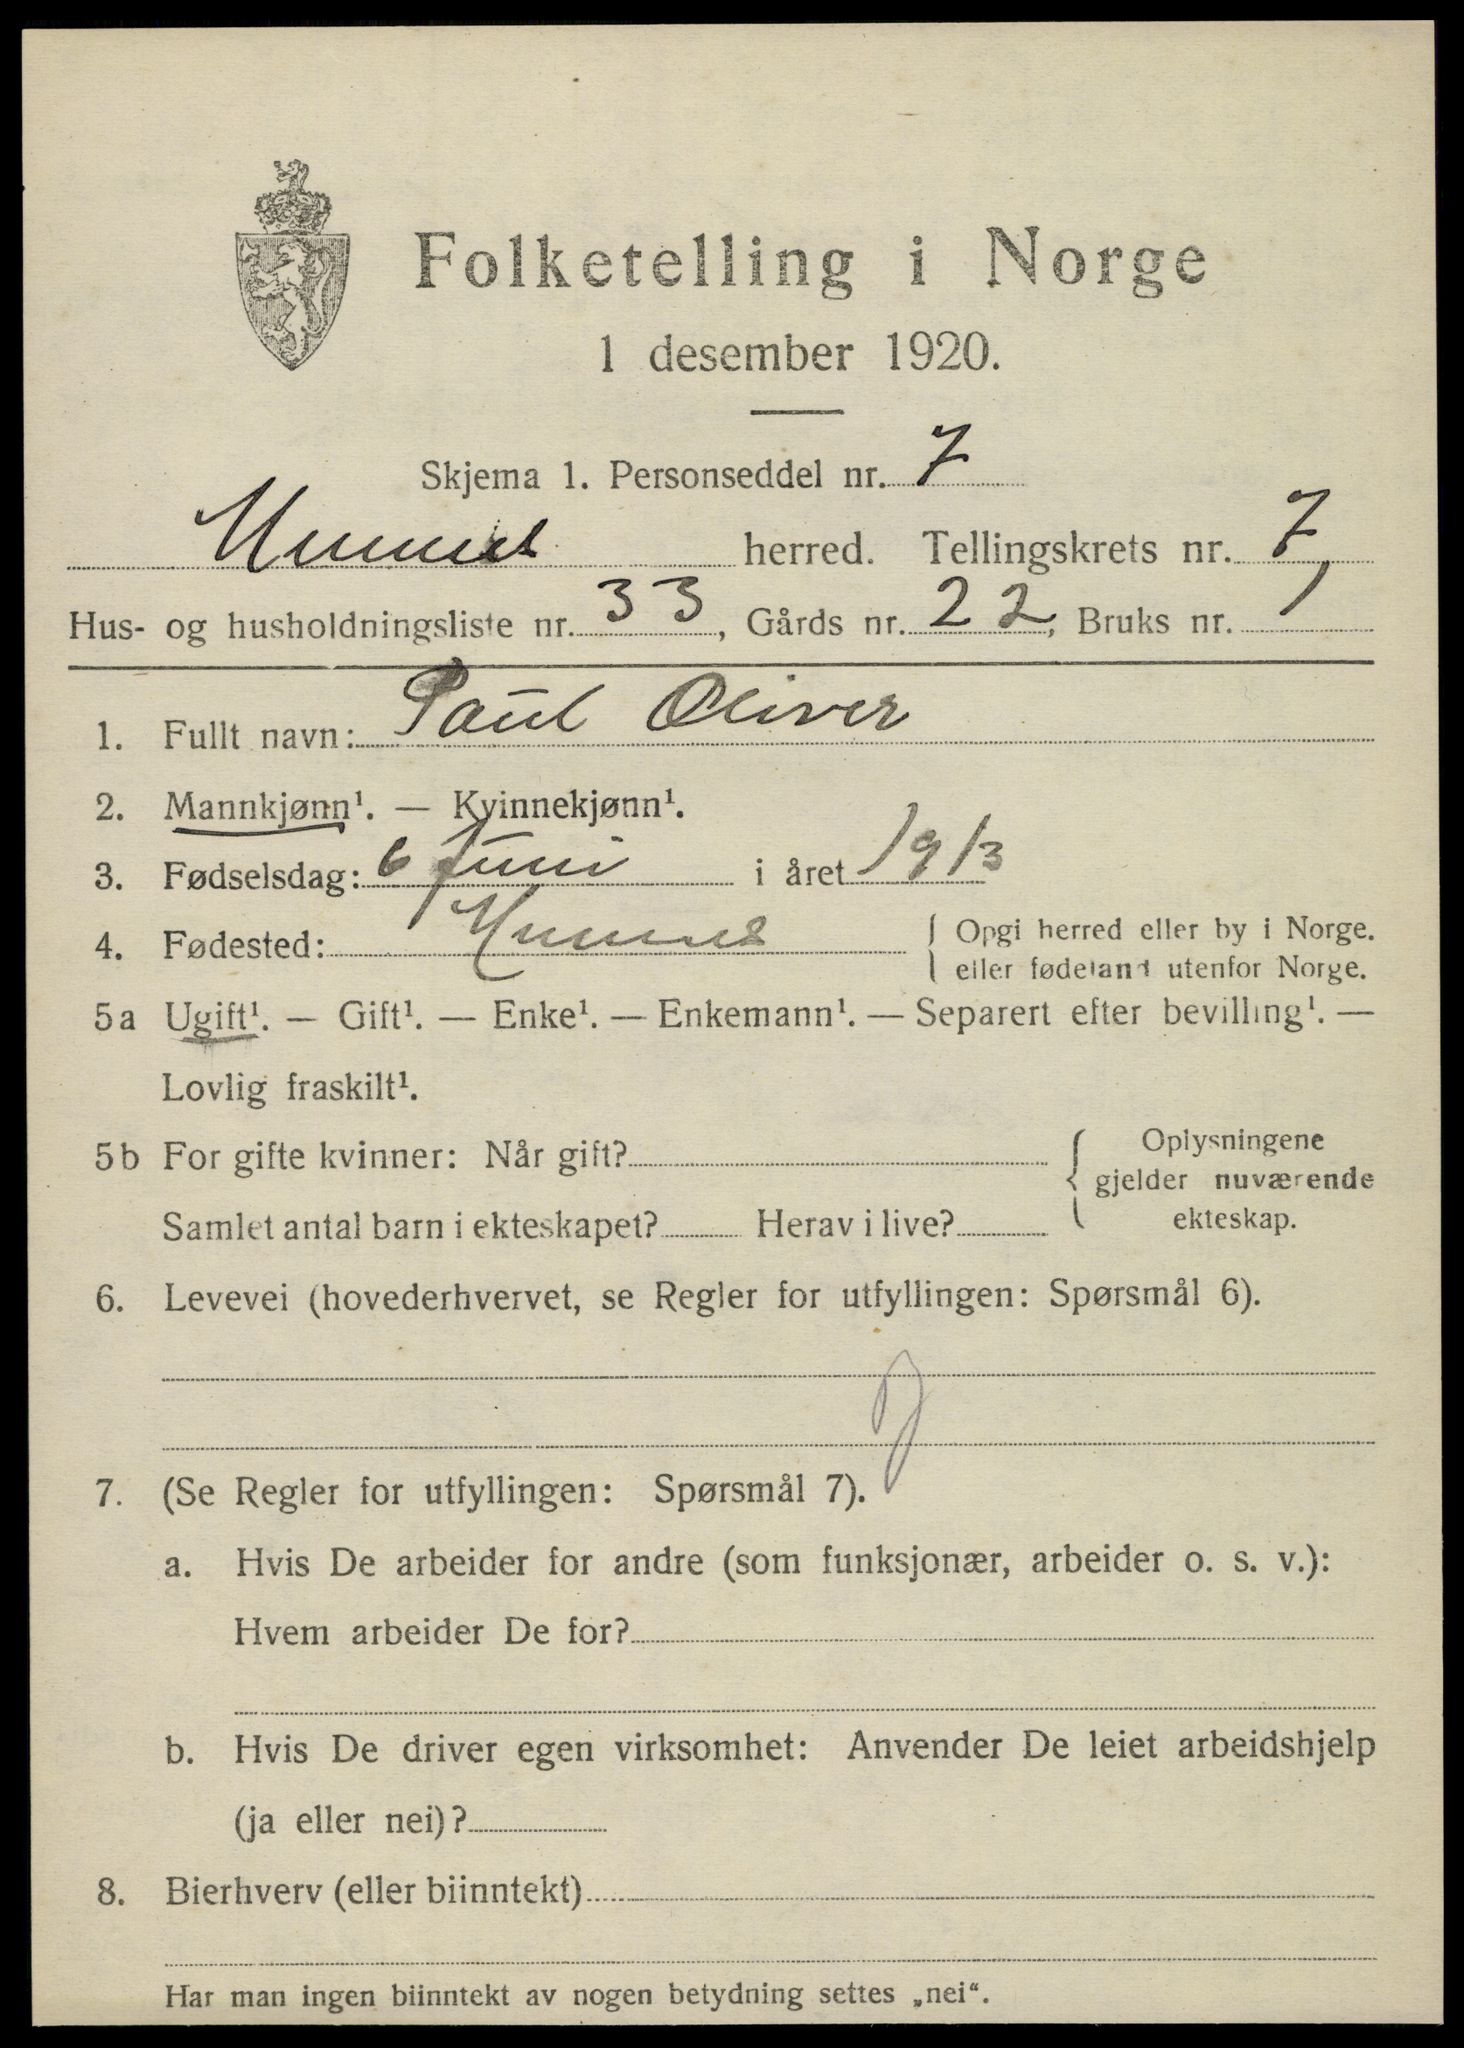 Folketelling i Norge
1 desember 1920.
Skjema 1. Personseddel nr. 7
herred. Tellingskrets nr. 7
Hus- og husholdningsliste nr. 33, Gårds nr. 22, Bruks nr. 1
1. Fullt navn: Paul Oliver
2. Mannkjønn¹. — Kvinnekjønn¹.
3. Fødselsdag: 6 Juni i året 1913
4. Fødested: { Opgi herred eller by i Norge.
eller fødeland utenfor Norge.
5a Ugift¹. — Gift¹. — Enke¹. — Enkemann¹. — Separert efter bevilling¹. —
Lovlig fraskilt¹.
5b For gifte kvinner: Når gift? { Oplysningene
gjelder nuværende
Samlet antal barn i ekteskapet? Herav i live? ekteskap.
6. Levevei (hovederhvervet, se Regler for utfyllingen: Spørsmål 6).
7. (Se Regler for utfyllingen: Spørsmål 7).
a. Hvis De arbeider for andre (som funksjonær, arbeider o. s. v.):
Hvem arbeider De for?
b. Hvis De driver egen virksomhet: Anvender De leiet arbeidshjelp
(ja eller nei)?
8. Bierhverv (eller biinntekt)
Har man ingen biinntekt av nogen betydning settes „nei“.